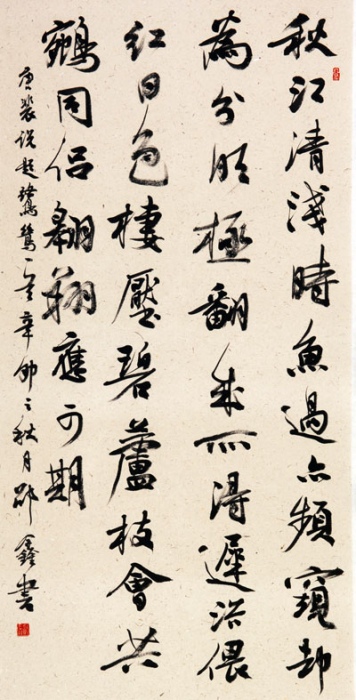 秋江清淺時魚過亦頻窺却
為分明極翻成所得遲浴偎
紅日色棲壓碧蘆枝會共
鵷同侣翱翔應可期
唐裴説題鷺鷥一首辛卯之秋月邵鑫書